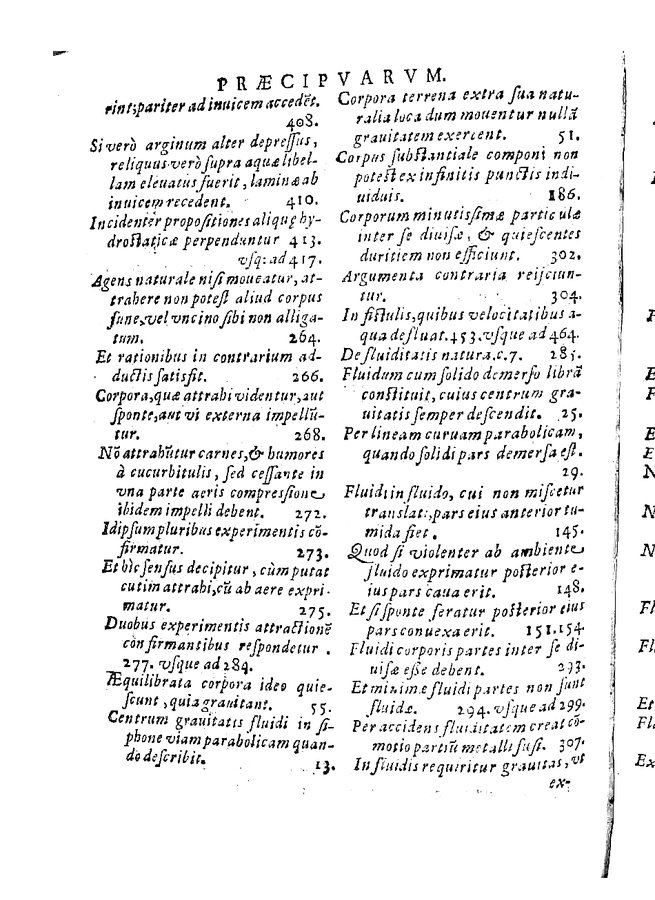 PRÆCIPVARVM.
rint; pariter ad inuicem accedẽt.
408.
Si verò arginum alter depreſſus,
reliquus verò ſupra aquæ libel-
lam eleuatus fuerit, laminæ ab
inuicem recedent. 410.
Incidenter propoſitiones aliquę hy-
droſtaticæ perpenduntur 413.
vſq; ad 417.
Agens naturale niſi moueatur, at-
trahere non poteſt aliud corpus
fune, vel vncino ſibi non alliga-
tum. 264.
Et rationibus in contrarium ad-
ductis ſatisfit. 266.
Corpora, quæ attrahi videntur, aut
ſponte, aut vi externa impellũ-
tur. 268.
Nõ attrahũtur carnes, & humores
à cucurbitulis, ſed ceſſante in
vna parte aeris compreſſione
ibidem impelli debent. 272.
Idipſum pluribus experimentis cõ-
firmatur. 273.
Et hìc ſenſus decipitur, cùm putat
cutim attrahi, cũ ab aere expri-
matur. 275.
Duobus experimentis attractionẽ
confirmantibus reſpondetur.
277. vſque ad 284.
Æquilibrata corpora ideo quie-
ſcunt, quia grauitant. 55.
Centrum grauitatis fluidi in ſi-
phone viam parabolicam quan-
do deſcribit. 13.
Corpora terrena extra ſua natu-
ralia loca dum mouentur nullã
grauitatem exercent. 51.
Corpus ſubſtantiale componi non
poteſt ex infinitis punctis indi-
uiduis. 186.
Corporum minutiſſimæ particulæ
inter ſe diuiſæ, & quieſcentes
duritiem non efficiunt. 302.
Argumenta contraria reijciun-
tur. 304.
In fiſtulis, quibus velocitatibus a-
qua defluat. 453. vſque ad 464.
De fluiditatis natura. c. 7. 285.
Fluidum cum ſolido demerſo librã
conſtituit, cuius centrum gra-
uitatis ſemper deſcendit. 25.
Per lineam curuam parabolicam,
quando ſolidi pars demerſa eſt.
29.
Fluidi in fluido, cui non miſcetur
translati, pars eius anterior tu-
mida fiet. 145.
Quod ſi violenter ab ambiente
fluido exprimatur poſterior e-
ius pars caua erit. 148.
Et ſi ſponte feratur poſterior eius
pars conuexa erit. 151. 154.
Fluidi corporis partes inter ſe di-
uiſæ eſſe debent. 293.
Et minimæ fluidi partes non ſunt
fluidæ. 294. vſque ad 299.
Per accidens fluiditatem creat cõ-
motio partiũ metalli fuſi. 307.
In fluidis requiritur grauitas, vt
ex-
N
Fl
Fl
Et
Ex